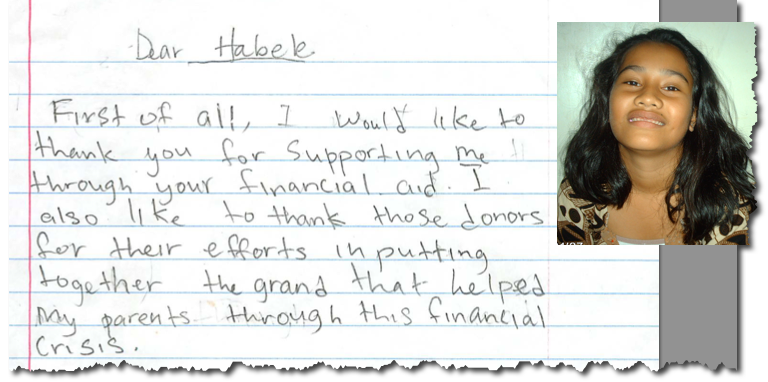 Dear Habele
First of all, I would like to
thank you for supporting me
through your financial aid. I
also like to thank those donors
for their efforts in putting
together the grand that helped
my parents through this financial
crisis.